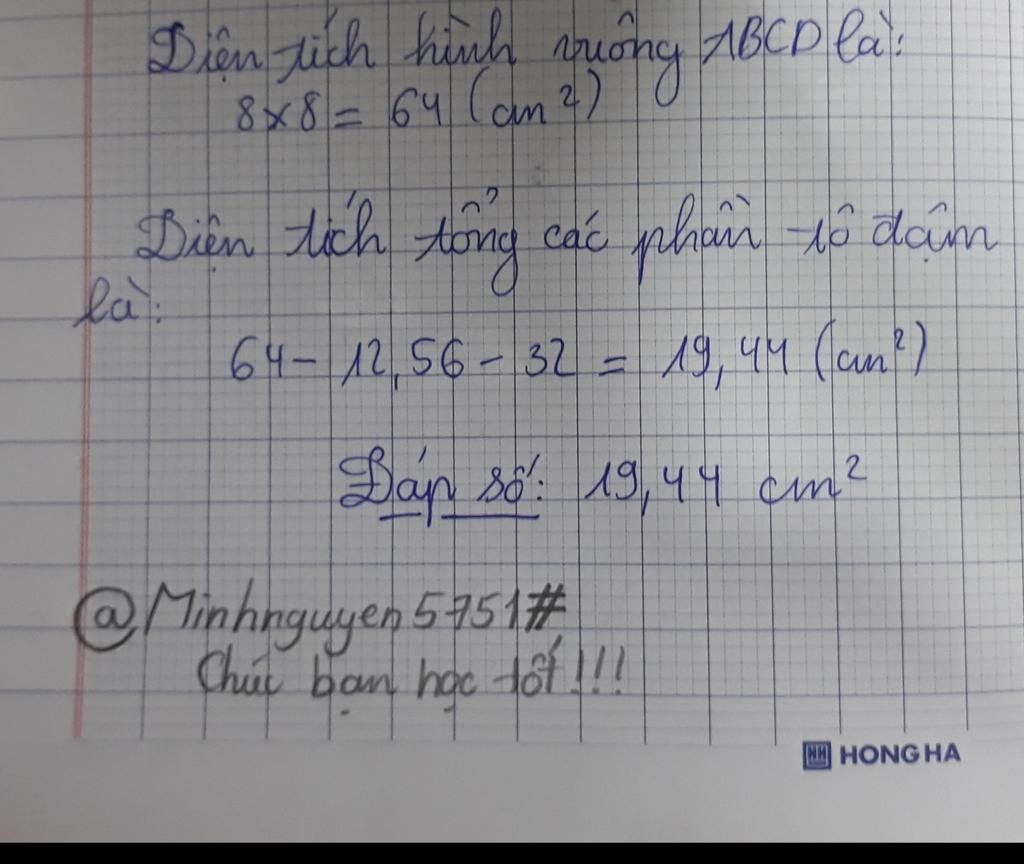 Diện tích hình vuông ABCD là:
8x8 = 64 (cm²)
Diện tích tổng các phần tô đậm
là:
64 - 12,56 - 32 = 19,44 (cm²)
Đáp số: 19,44 cm²
@Minhnguyen5751#
Chúc bạn học tốt!!!
HH HONG HA